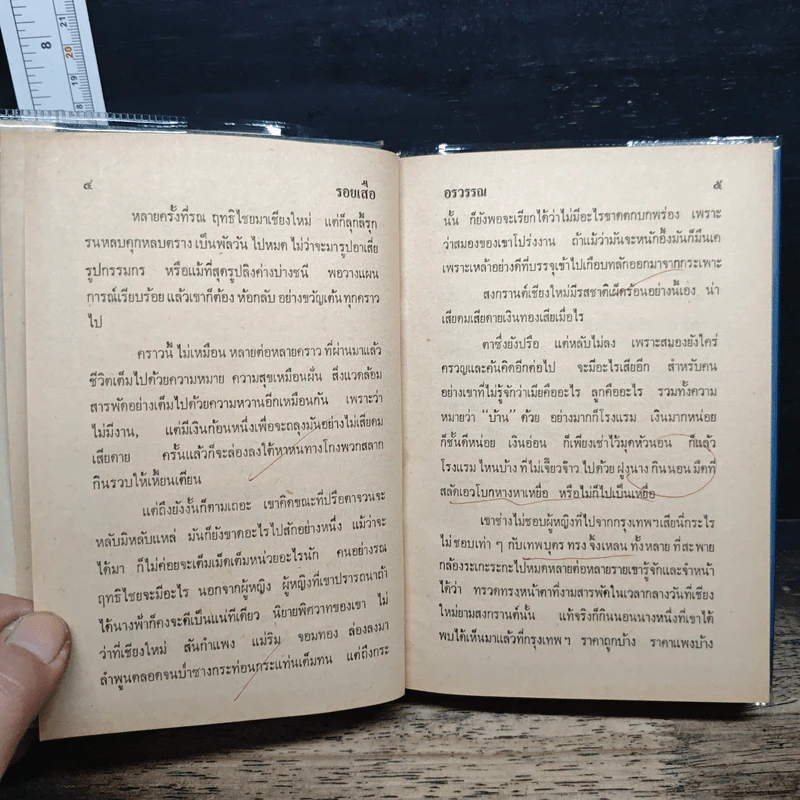 8
21
20
19
๔
รอยเสือ
หลายครั้งที่รณ ฤทธิไชยมาเชียงใหม่ แต่ก็ลุกลี้รุก
รนหลบคุกหลบตราง เป็นพัลวัน ไปหมด ไม่ว่าจะมารูปอาเสี่ย
รูปกรรมกร หรือแม้ที่สุดรูปลิงค่างบ่างชนี พอวางแผน
การณ์เรียบร้อย แล้วเขาก็ต้อง ห้อกลับ อย่างขวัญเต้นทุกคราว
ไป
คราวนี้ ไม่เหมือน หลายต่อหลายคราว ที่ผ่านมาแล้ว
ชีวิตเต็มไปด้วยความหมาย ความสุขเหมือนฝัน สิ่งแวดล้อม
สารพัดอย่างเต็มไปด้วยความหวานอีกเหมือนกัน เพราะว่า
ไม่มีงาน, แต่มีเงินก้อนหนึ่งเพื่อจะถลุงมันอย่างไม่เสียดม
เสียดาย ครั้นแล้วก็จะล่องลงใต้หาหนทางโกงพวกสลาก
กินรวบให้เหี้ยนเตียน
แต่ถึงยังงั้นก็ตามเถอะ เขาคิดขณะที่ปรือตาจวนจะ
หลับมิหลับแหล่ มันก็ยังขาดอะไรไปสักอย่างหนึ่ง แม้ว่าจะ
ได้มา ก็ไม่ค่อยจะเต็มเม็ดเต็มหน่วยอะไรนัก คนอย่างรณ
ฤทธิไชยจะมีอะไร นอกจากผู้หญิง ผู้หญิงที่เขาปรารถนาถ้า
ได้นางฟ้าก็คงจะดีเป็นแน่ทีเดียว นิยายพิศวาทของเขา ไม่
ว่าที่เชียงใหม่ สันกำแพง แม่ริม จอมทอง ล่องลงมา
ลำพูนตลอดจนป่าซางกระท่อนกระแท่นเต็มทน แต่ถึงกระ
อรวรรณ
๕
นั้น ก็ยังพอจะเรียกได้ว่าไม่มีอะไรขาดตกบกพร่อง เพราะ
ว่าสมองของเขาโปร่งงาน ถ้าแม้ว่ามันจะหนักอึ้งมันก็มึนเต
เพราะเหล้าอย่างดีที่บรรจุเข้าไปเกือบทลักออกมาจากกระเพาะ
สงกรานต์เชียงใหม่มีรสชาติเผ็ดร้อนอย่างนี้เอง น่า
เสียดมเสียดายเงินทองเสียเมื่อไร
ตาซึ่งยังปรือ แต่หลับไม่ลง เพราะสมองยังใคร่
ครวญและค้นคิดอีกต่อไป จะมีอะไรเสียอีก สำหรับคน
อย่างเขาที่ไม่รู้จักว่าเมียคืออะไร ลูกคืออะไร รวมทั้งความ
หมายว่า “บ้าน” ด้วย อย่างมากก็โรงแรม เงินมากหน่อย
ก็ชั้นดีหน่อย เงินอ่อน ก็เพียงเช่าไว้มุดหัวนอน ก็แล้ว
โรงแรม ไหนบ้าง ที่ไม่เจี๊ยวจ๊าว ไปด้วย ฝูงนาง กินนอน มีดที่
สลัดเอวโบกหางหาเหยื่อ หรือไม่ก็ไปเป็นเหยื่อ
เขาช่างไม่ชอบผู้หญิงที่ไปจากกรุงเทพฯเสียนี่กระไร
ไม่ชอบเท่า ๆ กับเทพบุตร ทรง จิ้งเหลน ทั้งหลาย ที่สะพาย
กล้องระเกะระกะไปหมดหลายต่อหลายรายเขารู้จักและจำหน้า
ได้ว่า ทรวดทรงหน้าตาที่งามสารพัดในเวลากลางวันที่เชียง
ใหม่ยามสงกรานต์นั้น แท้จริงก็กินนอนนางหนึ่งที่เขาได้
พบได้เห็นมาแล้วที่กรุงเทพฯ ราคาถูกบ้าง ราคาแพงบ้าง